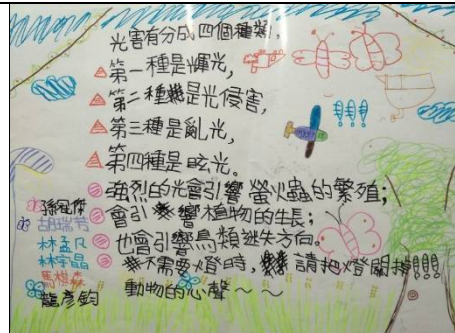 光害有分成四個種類,
第一種是輝光,
第二種是光侵害,
第三種是亂光,
第四種是眩光。
強烈的光會引響螢火蟲的繁殖;
會引響植物的生長;
也會引響鳥類迷失方向。
不需要燈時,請把燈關掉!!!
動物的心聲~~
!!!
孫冠傑
胡瑞芳
林孟凡
林宇晶
馬橙森
龍彥鈞